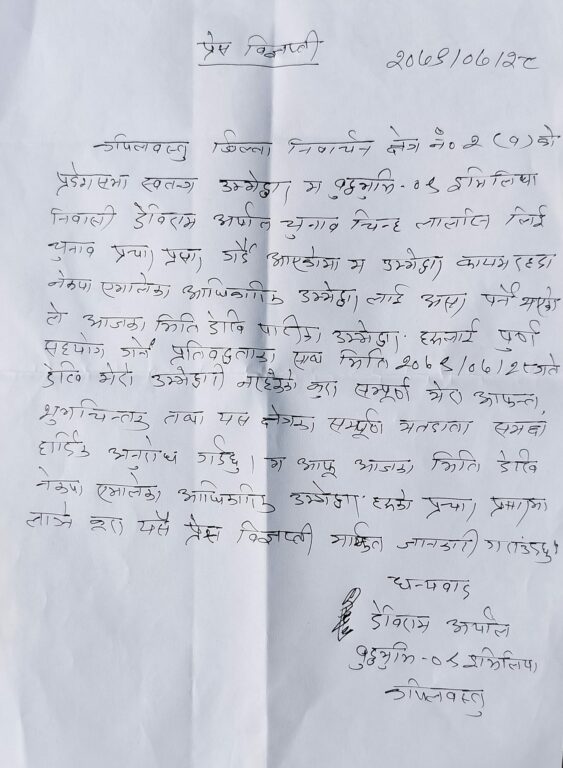 प्रेस विज्ञप्ती
२०७९/०७/२८
कपिलवस्तु जिल्ला निर्वाचन क्षेत्र नं० २ (१) को
प्रदेशसभा स्वतन्त्र उम्मेद्वार म बुद्धभुमि-०९ इमिलिया
निवासी डेविराम अर्याल चुनाव चिन्ह लालटिन लिई
चुनाव प्रचार प्रसार गर्दै आएकोमा म उम्मेद्वार कायम रहदा
नेकपा एमालेका आधिकारिक उम्मेद्वार लाई असर पर्ने भएको
ले आजका मिति देखि पार्टीका उम्मेद्वार हरूलाई पुर्ण
सहयोग गर्ने प्रतिवद्दताका साथ मिति २०७९/०७/२८गते
देखि मेरो उम्मेद्वारी नरहेको कुरा सम्पूर्ण मेरा आफन्त,
शुभचिन्तक तथा यस क्षेत्रका सम्पूर्ण मतदाता समक्ष
हार्दिक अनुरोध गर्दछु । म आफू आजका मिति देखि
नेकपा एमालेका आधिकारिक उम्मेद्वार हरूको प्रचार प्रसारमा
लाग्ने कुरा यसै प्रेस विज्ञप्ती मार्फत जानकारी गराउँदछु ।
धन्यवाद
डेविराम अर्याल
बुद्धभुमि-०९ इमिलिया
कपिलवस्तु